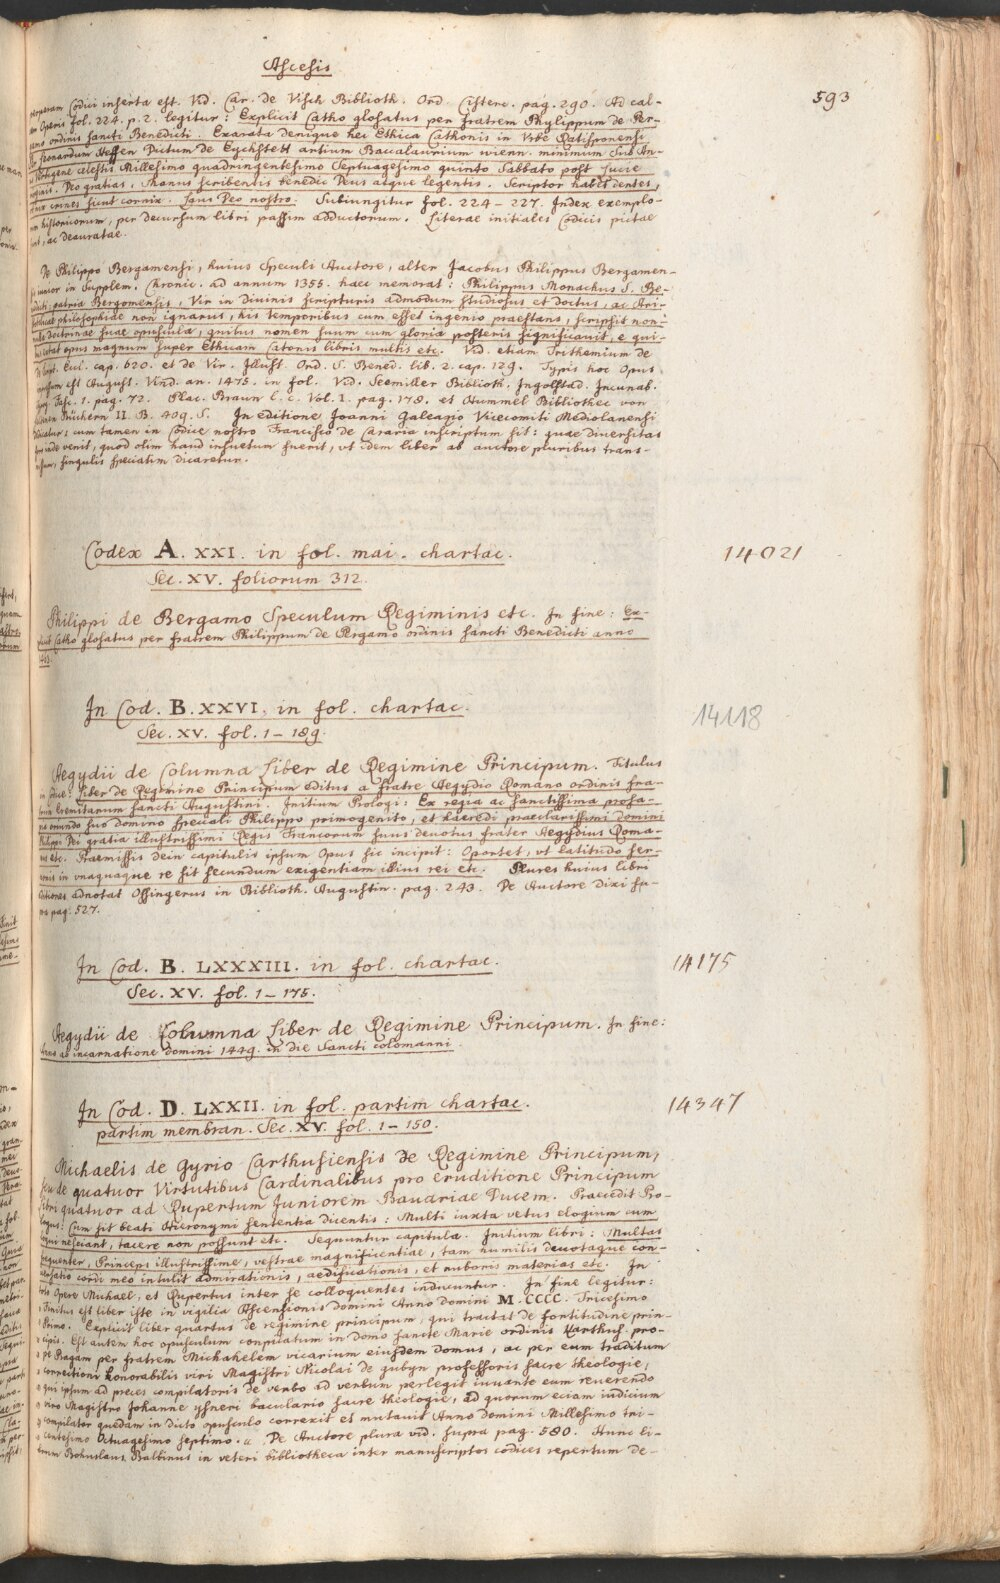 Ascesis
593
Codici inserta est. Vid. Car. de Visch Biblioth. Ord. Cisterc. pag. 290. Ad cal-
Operis fol. 224. p. 2. legitur: Explicit Catho glosatus per fratrem Phylippum de Per-
ordinis sancti Benedicti. Exarata denique hec Ethica Cathonis in Vrbe Ratisponensi
Leonardum Heffen Dictum de Eychstett artium Baccalaurium wienn. minimum Sub An-
celestis Millesimo quadringentesimo Septuagesimo quinto Sabbato post Lucie
Deo gratias. Manus scribentis benedic Deus atque legentis. Scriptor habet dentes,
crines sicut cornix. Laus Deo nostro. Subiungitur fol. 224 – 227. Index exemplo-
historicorum, per decursum libri passim adductorum. Literae initiales Codicis pictae
sunt, ac deauratae.
De Philippo Bergamensi, huius Speculi Auctore, alter Jacobus Philippus Bergamen-
iunior in Supplem. Chronic. ad annum 1355. haec memorat: Philippus Monachus S. Be-
patria Bergomensis, Vir in Divinis scripturis admodum studiosus et doctus, ac Ari-
philosophiae non ignarus, his temporibus cum esset ingenio praestans, scripsit non-
doctrinae suae opuscula, quibus nomen suum cum gloria posteris significauit, e qui-
opus magnum super Ethicam Catonis libris multis etc. Vid. etiam Trithemium de
Script. Eccl. cap. 620. et de Vir. Illust. Ord. S. Bened. lib. 2. cap. 129. Typis hoc Opus
est August. Vind. an. 1475. in fol. Vid. Seemiller Biblioth. Ingolstad. Incunab.
Typog. Fasc. 1. pag. 72. Plac. Braun l. c. Vol. I. pag. 178. et Hummel Bibliothec von
Büchern II. B. 409. S. In editione Joanni Galeazio Vicecomiti Mediolanensi
dicatur; cum tamen in Codice nostro Francisco de Cararia inscriptum sit: quae diversitas
inde venit, quod olim haud insuetum fuerit, vt idem liber ab auctore pluribus trans-
singulis speciatim dicaretur.
Codex A. XXI. in fol. mai. chartac.
14021
Sec. XV. foliorum 312.
Philippi de Bergamo Speculum Regiminis etc. In fine: Ex-
plicit Catho glosatus per fratrem Philippum de Pergamo ordinis sancti Benedicti anno
In Cod. B. XXVI. in fol. chartac.
14118
Sec. XV. fol. 1 – 189.
Aegydii de Columna Liber de Regimine Principum. Titulus
in fine: Liber de Regimine Principum editus a fratre Aegydio Romano ordinis fra-
trum Eremitarum sancti Augustini. Initium Prologi: Ex regia ac sanctissima prosa-
pia oriundo suo domino speciali Philippo primogenito, et haeredi praeclarissimi domini
Philippi Dei gratia illustrissimi Regis Francorum suus devotus frater Aegydius Roma-
nus etc. Praemissis dein capitulis ipsum Opus sic incipit: Oportet, vt latitudo ser-
monis in vnaquaque re sit secundum exigentiam illius rei etc. Plures huius libri
editiones adnotat Ossingerus in Biblioth. Augustin. pag. 243. De Auctore Dixi su-
pra pag. 527.
In Cod. B. LXXXIII. in fol. chartac.
14175
Sec. XV. fol. 1 – 175.
Aegydii de Columna Liber de Regimine Principum. In fine:
Anno ab incarnatione domini 1449. in die Sancti Colomanni.
In Cod. D. LXXII. in fol. partim chartac.
14347
partim membran. Sec. XV. fol. 1 – 150.
Michaelis de Gyrio Carthusiensis de Regimine Principum,
seu de quatuor Virtutibus Cardinalibus pro eruditione Principum
libri quatuor ad Rupertum Juniorem Bavariae Ducem. Praecedit Pro-
logus: Cum sit beati Hieronymi sententia dicentis: Multi iuxta vetus elogium cum
loqui nesciant, tacere non possunt etc. Sequuntur capitula. Initium libri: Multas
frequenter, Princeps illustrissime, vestrae magnificentiae, tam humilis devotaque con-
versatio cordi meo intulit admirationis, aedificationis, et ruboris materias etc. In
toto Opere Michael, et Rupertus inter se colloquentes inducuntur. In fine legitur:
Finitus est liber iste in vigilia Ascensionis domini Anno Domini M.CCCC. Tricesimo
Primo. Explicit liber quartus de regimine principum, qui tractat de fortitudine prin-
cipis. Est autem hoc opusculum conpilatum in domo sancte Marie ordinis Karthus. pro-
pe Pragam per fratrem Michahelem vicarium eiusdem domus, ac per eum traditum
correctioni honorabilis viri Magistri Nicolai de gubyn professoris sacre theologie,
qui ipsum ad preces compilatoris de verbo ad verbum perlegit iuuante eum reuerendo
viro Magistro Johanne ysneri baculario sacre theologie, ad quorum eciam iudicium
compilator quedam in dicto opusculo correxit et mutauit Anno Domini Millesimo tri-
centesimo Octuagesimo septimo. De Auctore plura vid. supra pag. 580. Hunc li-
brum Bohuslaus Balbinus in veteri bibliotheca inter manuscriptos codices repertum de-